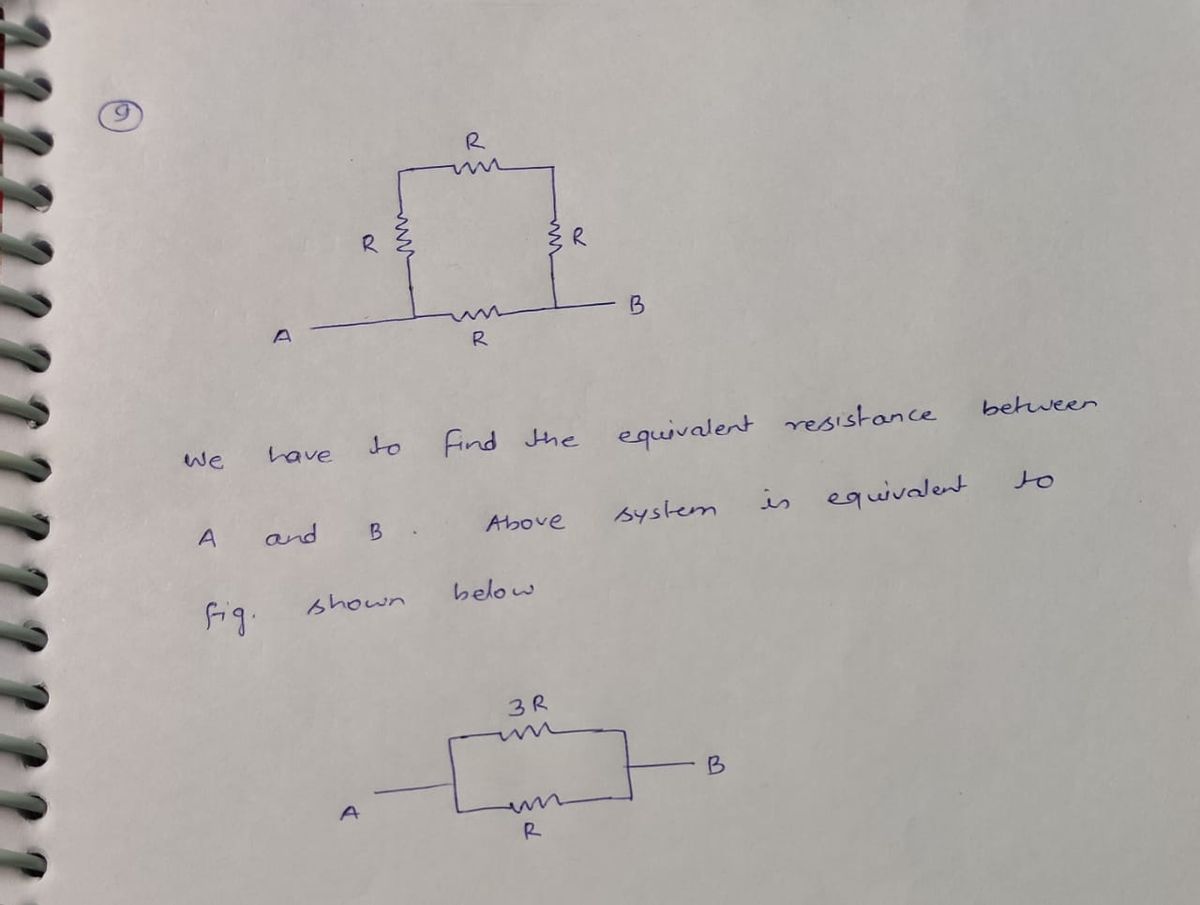 9
R
R
R
A
R
B
We have to find the equivalent resistance between
A and B. Above system is equivalent to
fig. shown below
3R
A
R
B